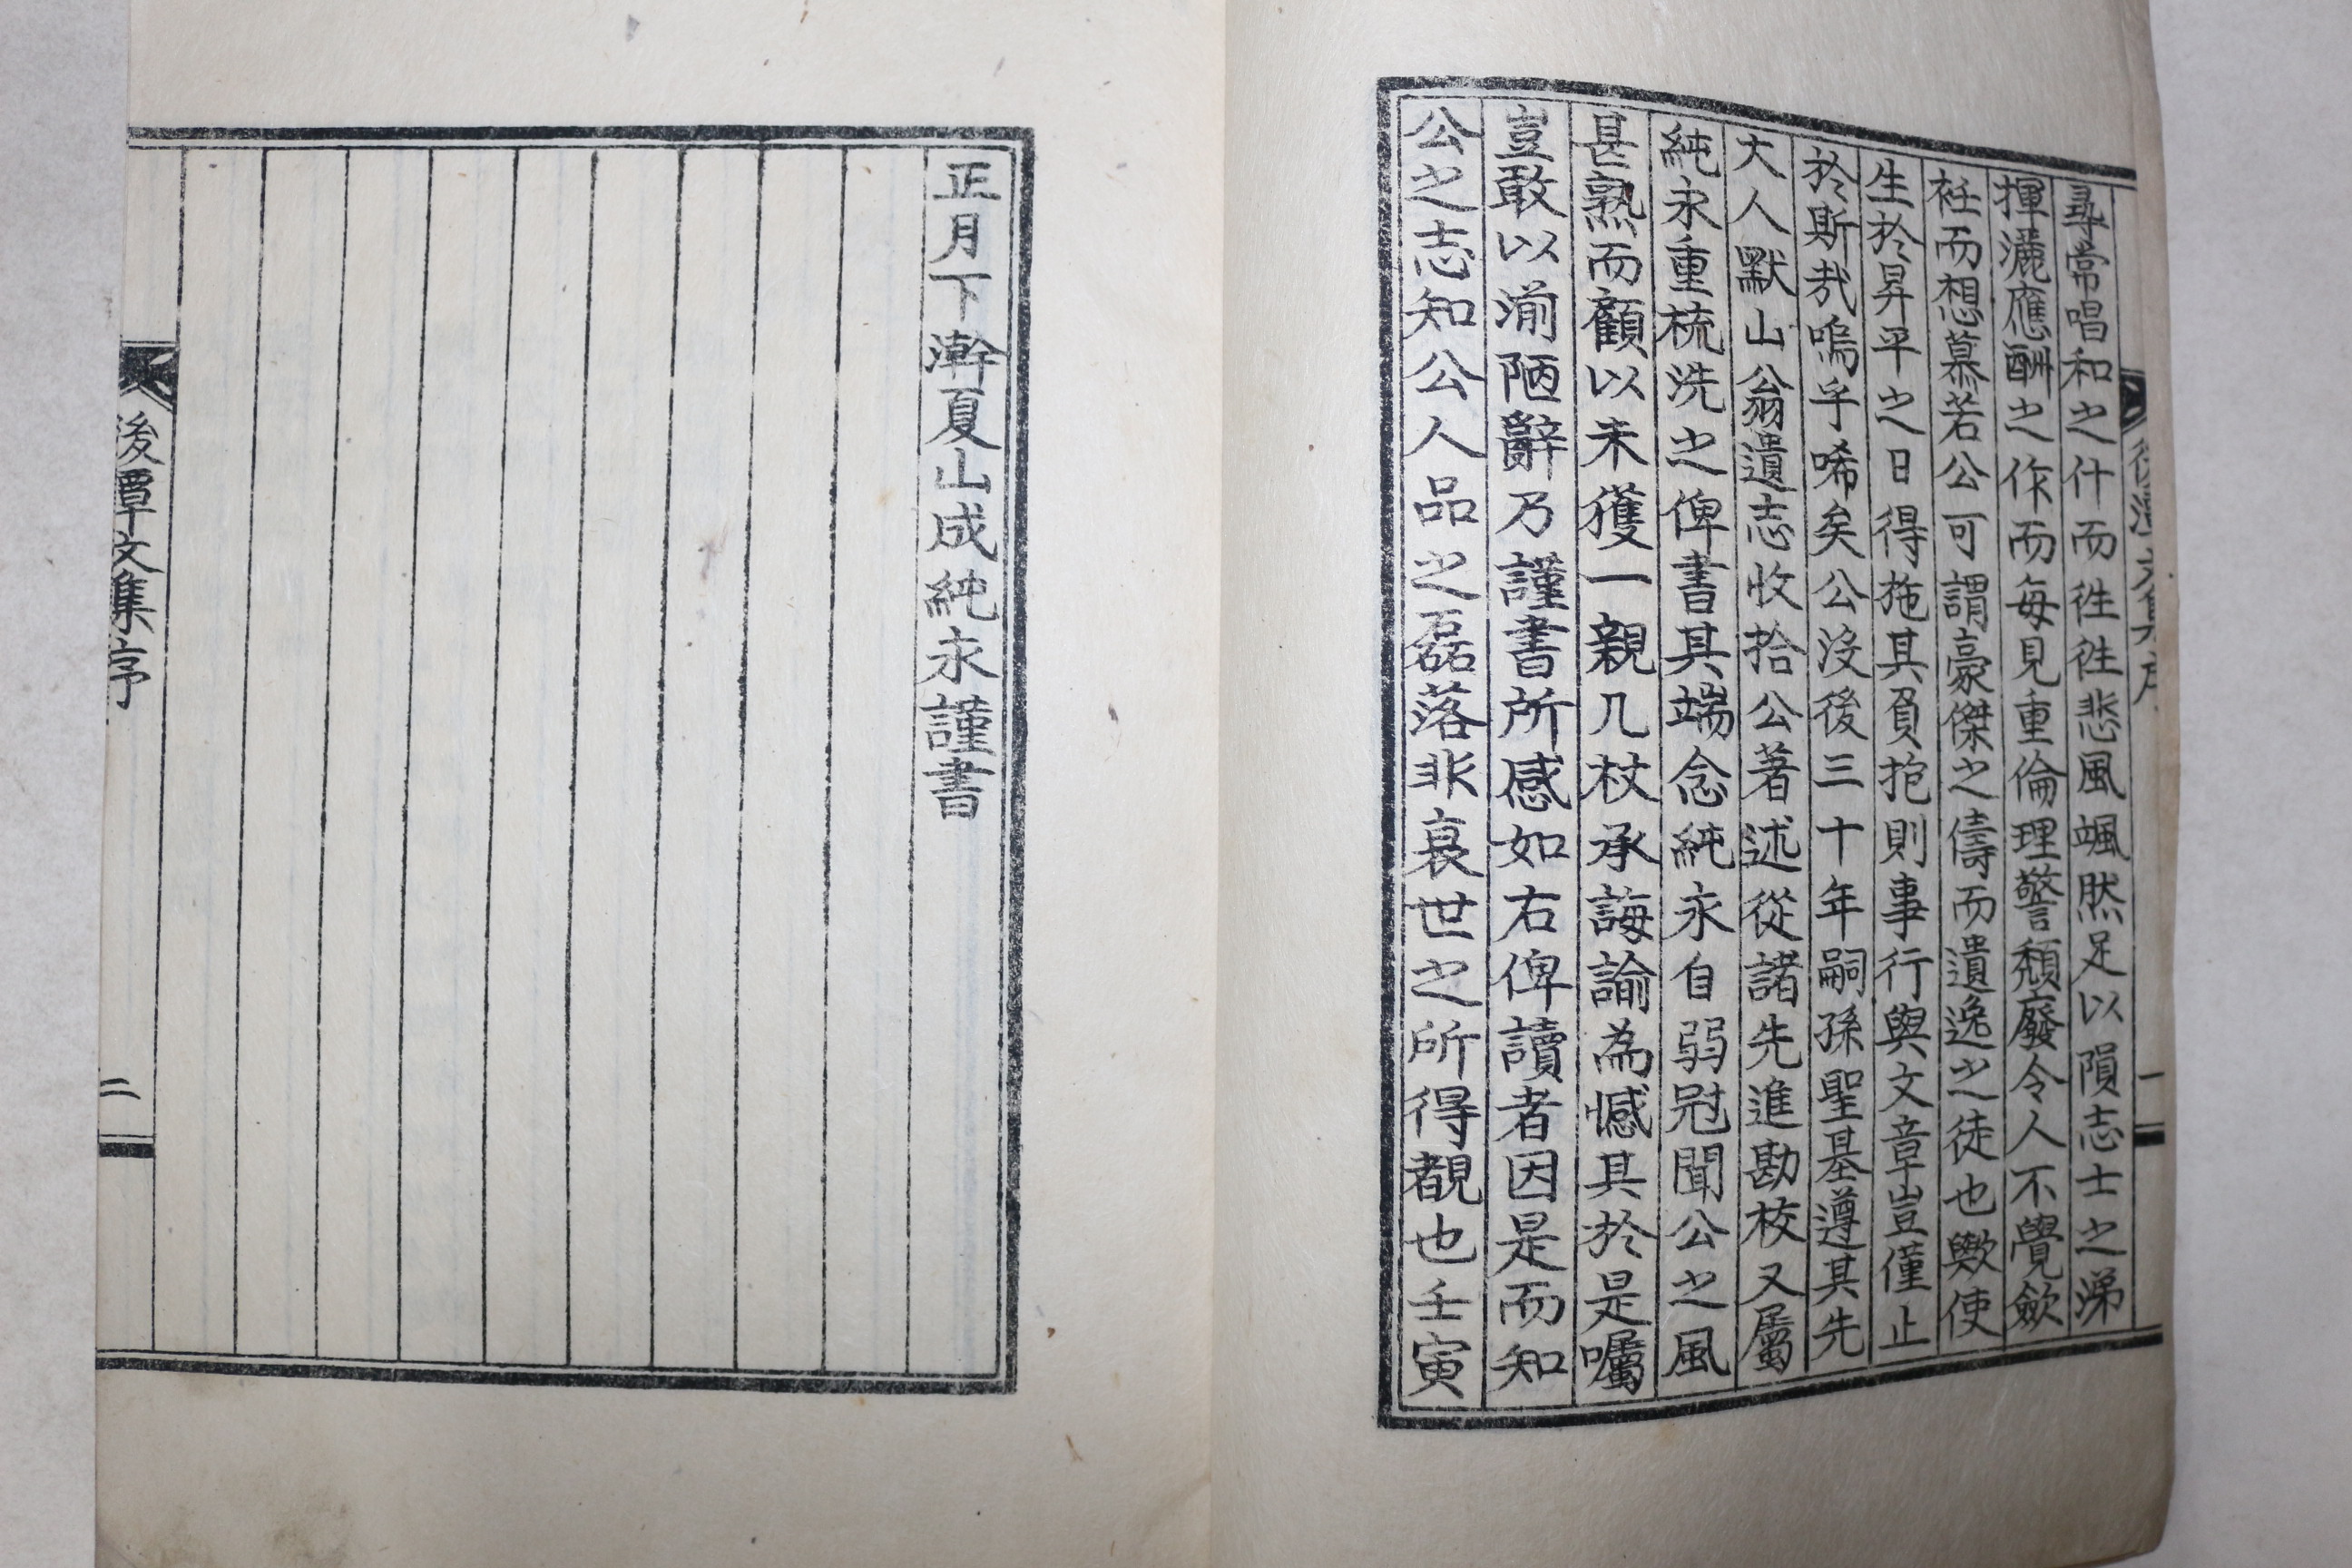 尋常唱和之什而徃徃悲風颯然足以隕志士之涕
揮灑應酬之作而每見重倫理警頹廢令人不覺斂
衽而想慕若公可謂豪傑之儔而遺逸之徒也歟使
生於昇平之日得拖其負抱則事行與文章豈僅止
於斯哉嗚乎唏矣公沒後三十年嗣孫聖基遵其先
大人默山翁遺志收拾公著述從諸先進勘校又屬
純永重梳洗之俾書其端念純永自弱冠聞公之風
甚熟而顧以未獲一親几杖承誨諭為憾其於是囑
豈敢以湔陋辭乃謹書所感如右俾讀者因是而知
公之志知公人品之磊落非衰世之所得覩也壬寅
正月下澣夏山成純永謹書
後潭文集序
二